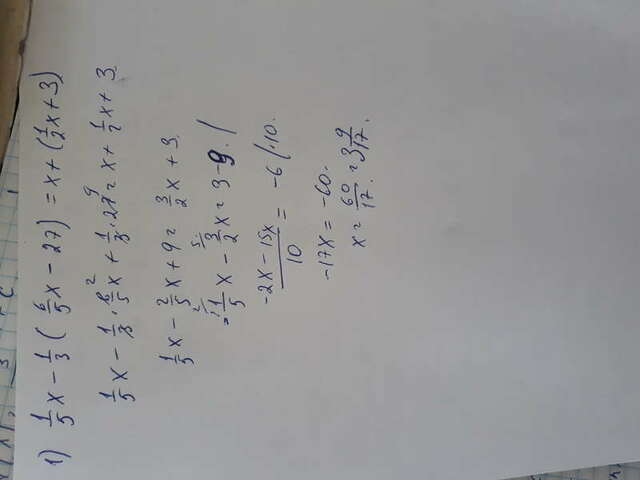 1) 1/5 x - 1/3 ( 6/5 x - 27 ) = x + ( 1/2 x + 3 )
1/5 x - 1/3 · 6/5 x + 1/3 · 27 = x + 1/2 x + 3
1/5 x - 2/5 x + 9 = 3/2 x + 3.
- 1/5 x - 3/2 x = 3 - 9. /
(-2x - 15x)/10 = -6 / ·10.
-17x = -60.
x = 60/17 = 3 9/17.